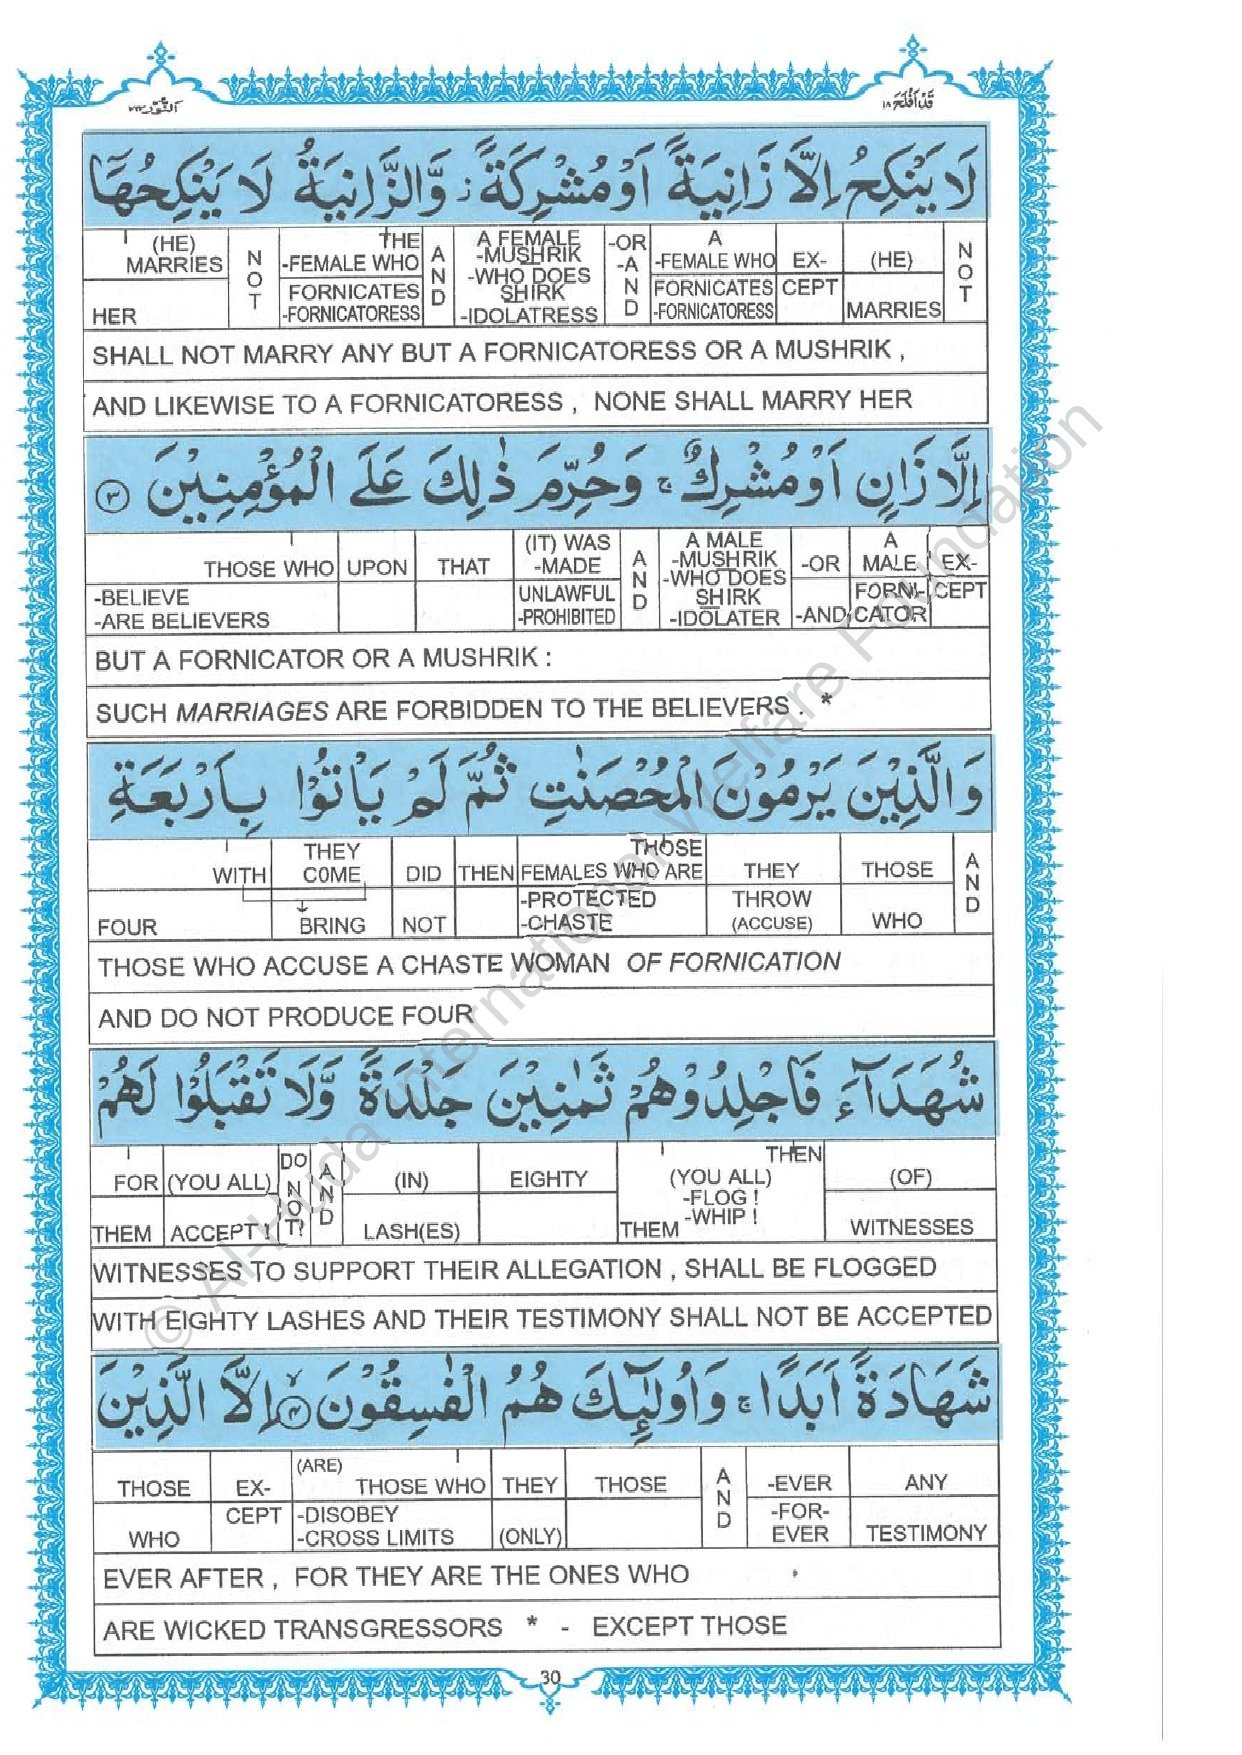 قَدْ اَفْلَحَ ١٨
اَلنُّوْر ٢٤
لَا يَنْكِحُ اِلَّا زَانِيَةً اَوْ مُشْرِكَةً ز وَّالزَّانِيَةُ لَا يَنْكِحُهَآ
NOT (HE) MARRIES EX-CEPT A -FEMALE WHO FORNICATES -FORNICATORESS -OR -AND A FEMALE -MUSHRIK -WHO DOES SHIRK -IDOLATRESS AND THE -FEMALE WHO FORNICATES -FORNICATORESS NOT (HE) MARRIES HER
SHALL NOT MARRY ANY BUT A FORNICATORESS OR A MUSHRIK ,
AND LIKEWISE TO A FORNICATORESS , NONE SHALL MARRY HER
اِلَّا زَانٍ اَوْ مُشْرِكٌ ج وَحُرِّمَ ذٰلِكَ عَلَى الْمُؤْمِنِيْنَ ٣
EX-CEPT A MALE FORNI-CATOR -OR -AND A MALE -MUSHRIK -WHO DOES SHIRK -IDOLATER AND (IT) WAS -MADE UNLAWFUL -PROHIBITED THAT UPON THOSE WHO -BELIEVE -ARE BELIEVERS
BUT A FORNICATOR OR A MUSHRIK :
SUCH MARRIAGES ARE FORBIDDEN TO THE BELIEVERS . *
وَالَّذِيْنَ يَرْمُوْنَ الْمُحْصَنٰتِ ثُمَّ لَمْ يَاْتُوْا بِاَرْبَعَةِ
AND THOSE WHO THEY THROW (ACCUSE) THOSE FEMALES WHO ARE -PROTECTED -CHASTE THEN DID NOT THEY COME BRING WITH FOUR
THOSE WHO ACCUSE A CHASTE WOMAN OF FORNICATION
AND DO NOT PRODUCE FOUR
شُهَدَآءَ فَاجْلِدُوْهُمْ ثَمٰنِيْنَ جَلْدَةً وَّلَا تَقْبَلُوْا لَهُمْ
(OF) WITNESSES THEN (YOU ALL) -FLOG ! -WHIP ! THEM EIGHTY (IN) LASH(ES) AND DO NOT! (YOU ALL) ACCEPT ! FOR THEM
WITNESSES TO SUPPORT THEIR ALLEGATION , SHALL BE FLOGGED
WITH EIGHTY LASHES AND THEIR TESTIMONY SHALL NOT BE ACCEPTED
شَهَادَةً اَبَدًا ج وَاُولٰٓئِكَ هُمُ الْفٰسِقُوْنَ ٤ لا اِلَّا الَّذِيْنَ
ANY TESTIMONY -EVER -FOR-EVER AND THOSE THEY (ONLY) (ARE) THOSE WHO -DISOBEY -CROSS LIMITS EX-CEPT THOSE WHO
EVER AFTER , FOR THEY ARE THE ONES WHO
ARE WICKED TRANSGRESSORS * - EXCEPT THOSE
30
© Al-Huda International Welfare Foundation